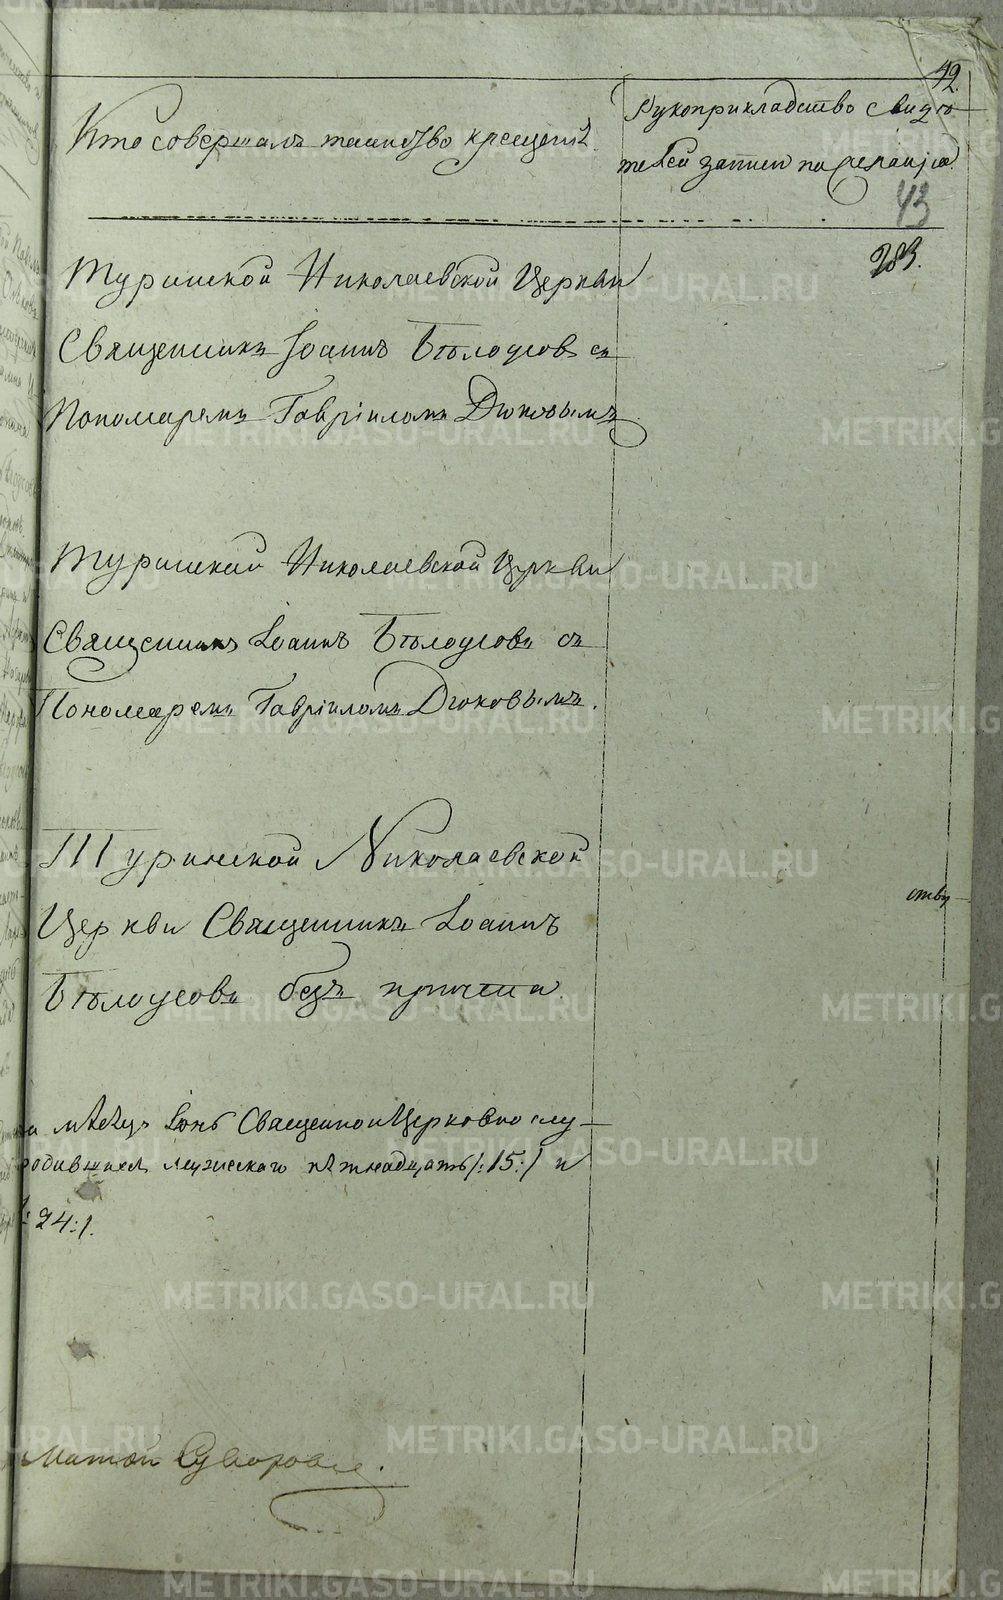 42.
Кто совершалъ таинство крещенія.
Рукоприкладство свидѣ-
телей записи по желанію.
43
283.
Туринской Николаевской Церкви
Священникъ Іоаннъ Бѣлоусовъ съ
Пономаремъ Гавріиломъ Дюковымъ.
Туринской Николаевской Церкви
Священникъ Іоаннъ Бѣлоусовъ съ
Пономаремъ Гавріиломъ Дюковымъ.
Туринской Николаевской
Церкви Священникъ Іоаннъ
Бѣлоусовъ безъ причта.
ству
мѣсяцъ Іюнь Священно и Церковно слу-
родившихся мужескаго пятнадцать /:15:/ и
/:24:/.
Суворовъ.
METRIKI.GASO-URAL.RU